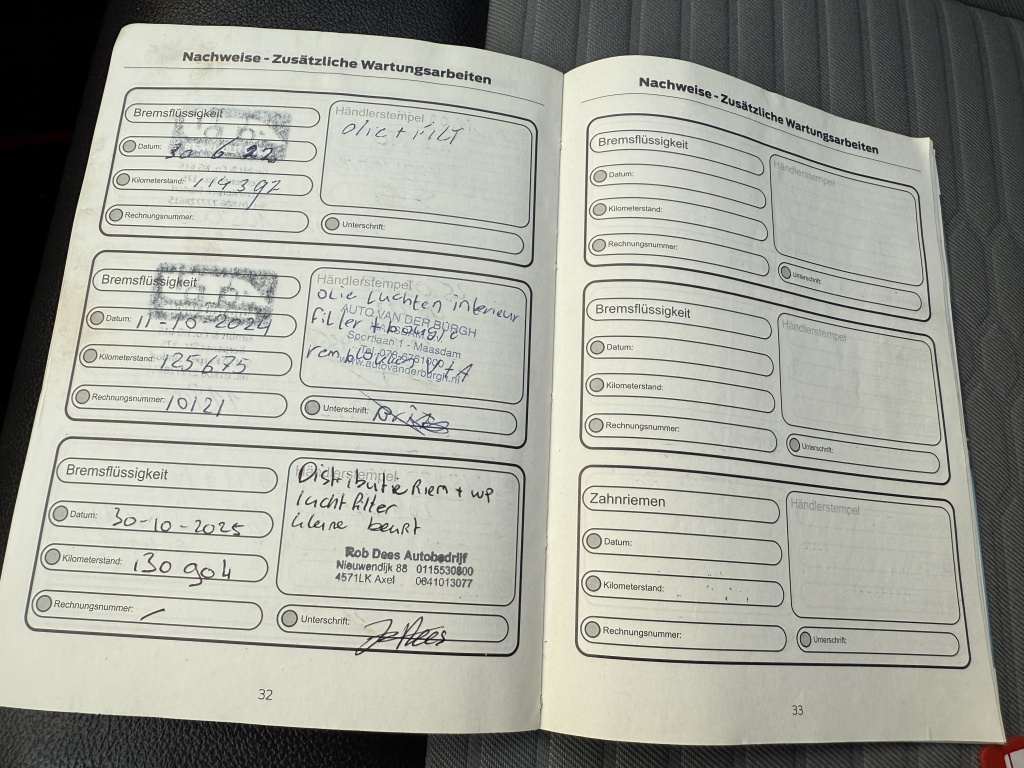 Nachweise - Zusätzliche Wartungsarbeiten
Bremsflüssigkeit
Datum: 30 6 22
Kilometerstand: 114397
Rechnungsnummer:
Händlerstempel
olie + filt
Unterschrift:
Bremsflüssigkeit
Datum: 11-10-2024
Kilometerstand: 125675
Rechnungsnummer: 10121
Händlerstempel
olie luchten interieur
filter + bougie
remblokken V+A
AUTO VAN DER BURGH
MAASDAM B.V.
Sportlaan 1 - Maasdam
Tel. 078-6761000
www.autovanderburgh.nl
Unterschrift:
Bremsflüssigkeit
Datum: 30-10-2025
Kilometerstand: 130904
Rechnungsnummer: /
Händlerstempel
Distributie Riem + wp
lucht filter
kleine beurt
Rob Dees Autobedrijf
Nieuwendijk 88 0115530800
4571LK Axel 0641013077
Unterschrift:
32
Nachweise - Zusätzliche Wartungsarbeiten
Bremsflüssigkeit
Datum:
Kilometerstand:
Rechnungsnummer:
Händlerstempel
Unterschrift:
Bremsflüssigkeit
Datum:
Kilometerstand:
Rechnungsnummer:
Händlerstempel
Unterschrift:
Zahnriemen
Datum:
Kilometerstand:
Rechnungsnummer:
Händlerstempel
Unterschrift:
33